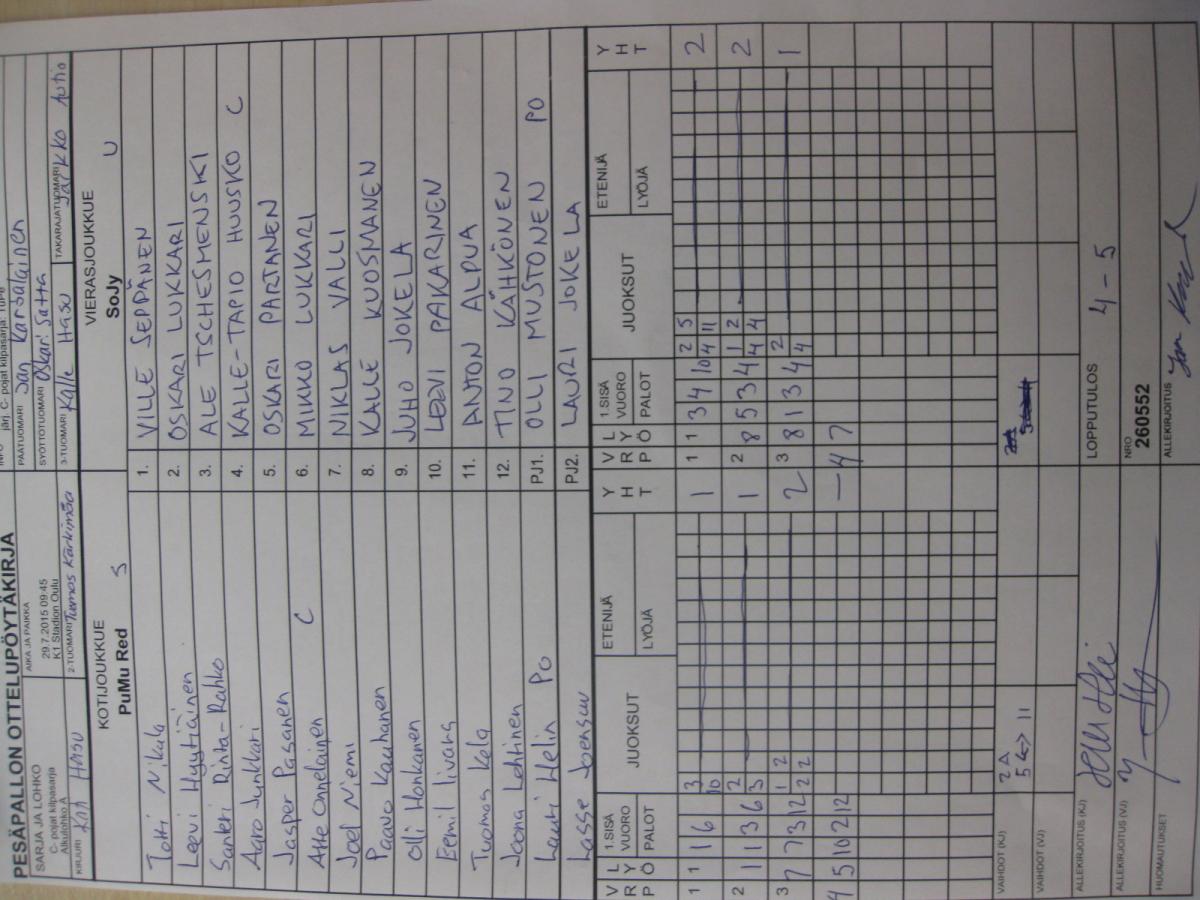 PESÄPALLON OTTELUPÖYTÄKIRJA
SARJA JA LOHKO
C- pojat kilpasarja
Alkulohko A
AIKA JA PAIKKA
29.7.2015 09:45
K1 Stadion Oulu
järj. C- pojat kilpasarja: TuPe
PÄÄTUOMARI
SYÖTTÖTUOMARI Oskari Satta
KIRJURI Kati HASU
2-TUOMARI Tuomas Kärkimaa
3-TUOMARI Kalle Hasu
TAKARAJATUOMARI Jarkko Autio
KOTIJOUKKUE
PuMu Red S
VIERASJOUKKUE
SoJy U
Totti Nikula 1. VILLE SEPPÄNEN
Leevi Hyytiäinen 2. OSKARI LUKKARI
Santeri Rinta-Rahko 3. ALE TSCHESMENSKI
Aaro Junkkari 4. KALLE-TAPIO HUUSKO C
Jasper Pasanen 5. OSKARI PARTANEN
Atte Onnelainen C 6. MIKKO LUKKARI
Joel Niemi 7. NIKLAS VALLI
Paavo Kauhanen 8. KALLE KUOSMANEN
Olli Honkanen 9. JUHO JOKELA
Eemil Iivana 10. LEEVI PAKARINEN
Tuomas Kela 11. ANTON ALPUA
Joona Lehtinen 12. TINO KÄHKÖNEN
Lauri Helin PO PJ1. OLLI MUSTONEN PO
Lasse Joensuu PJ2. LAURI JOKELA
V R P L Y Ö 1.SISÄ VUORO PALOT JUOKSUT ETENIJÄ LYÖJÄ Y H T V R P L Y Ö 1.SISÄ VUORO PALOT JUOKSUT ETENIJÄ LYÖJÄ Y H T
1 1 1 6 3 10 1 1 1 3 4 10 2 5 4 11 2
2 1 1 3 6 2 3 1 2 8 5 3 4 1 2 4 4 2
3 7 7 3 12 1 2 2 2 2 3 8 1 3 4 2 4 1
4 5 10 2 12 – 4 7
VAIHDOT (KJ) 2A
5<->11
VAIHDOT (VJ)
ALLEKIRJOITUS (KJ)
LOPPUTULOS 4 - 5
ALLEKIRJOITUS (VJ)
NRO
260552
HUOMAUTUKSET
ALLEKIRJOITUS